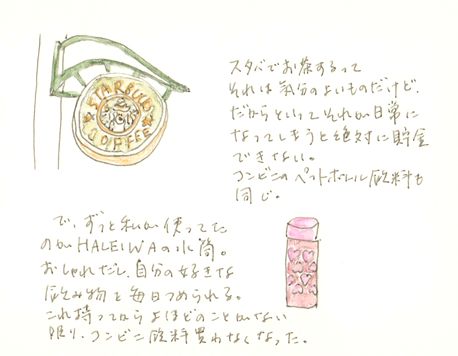 STARBUCKS
COFFEE
スタバでお茶するって
それは気分のよいものだけど、
だからといってそれが日常に
なってしまうと絶対に貯金
できない。
コンビニのペットボトル飲料も
同じ。
で、ずっと私が使ってた
のがHALEIWAの水筒。
おしゃれだし、自分の好きな
飲み物を毎日つめられる。
これ持ってから よほどのことがない
限り、コンビニ飲料買わなくなった。